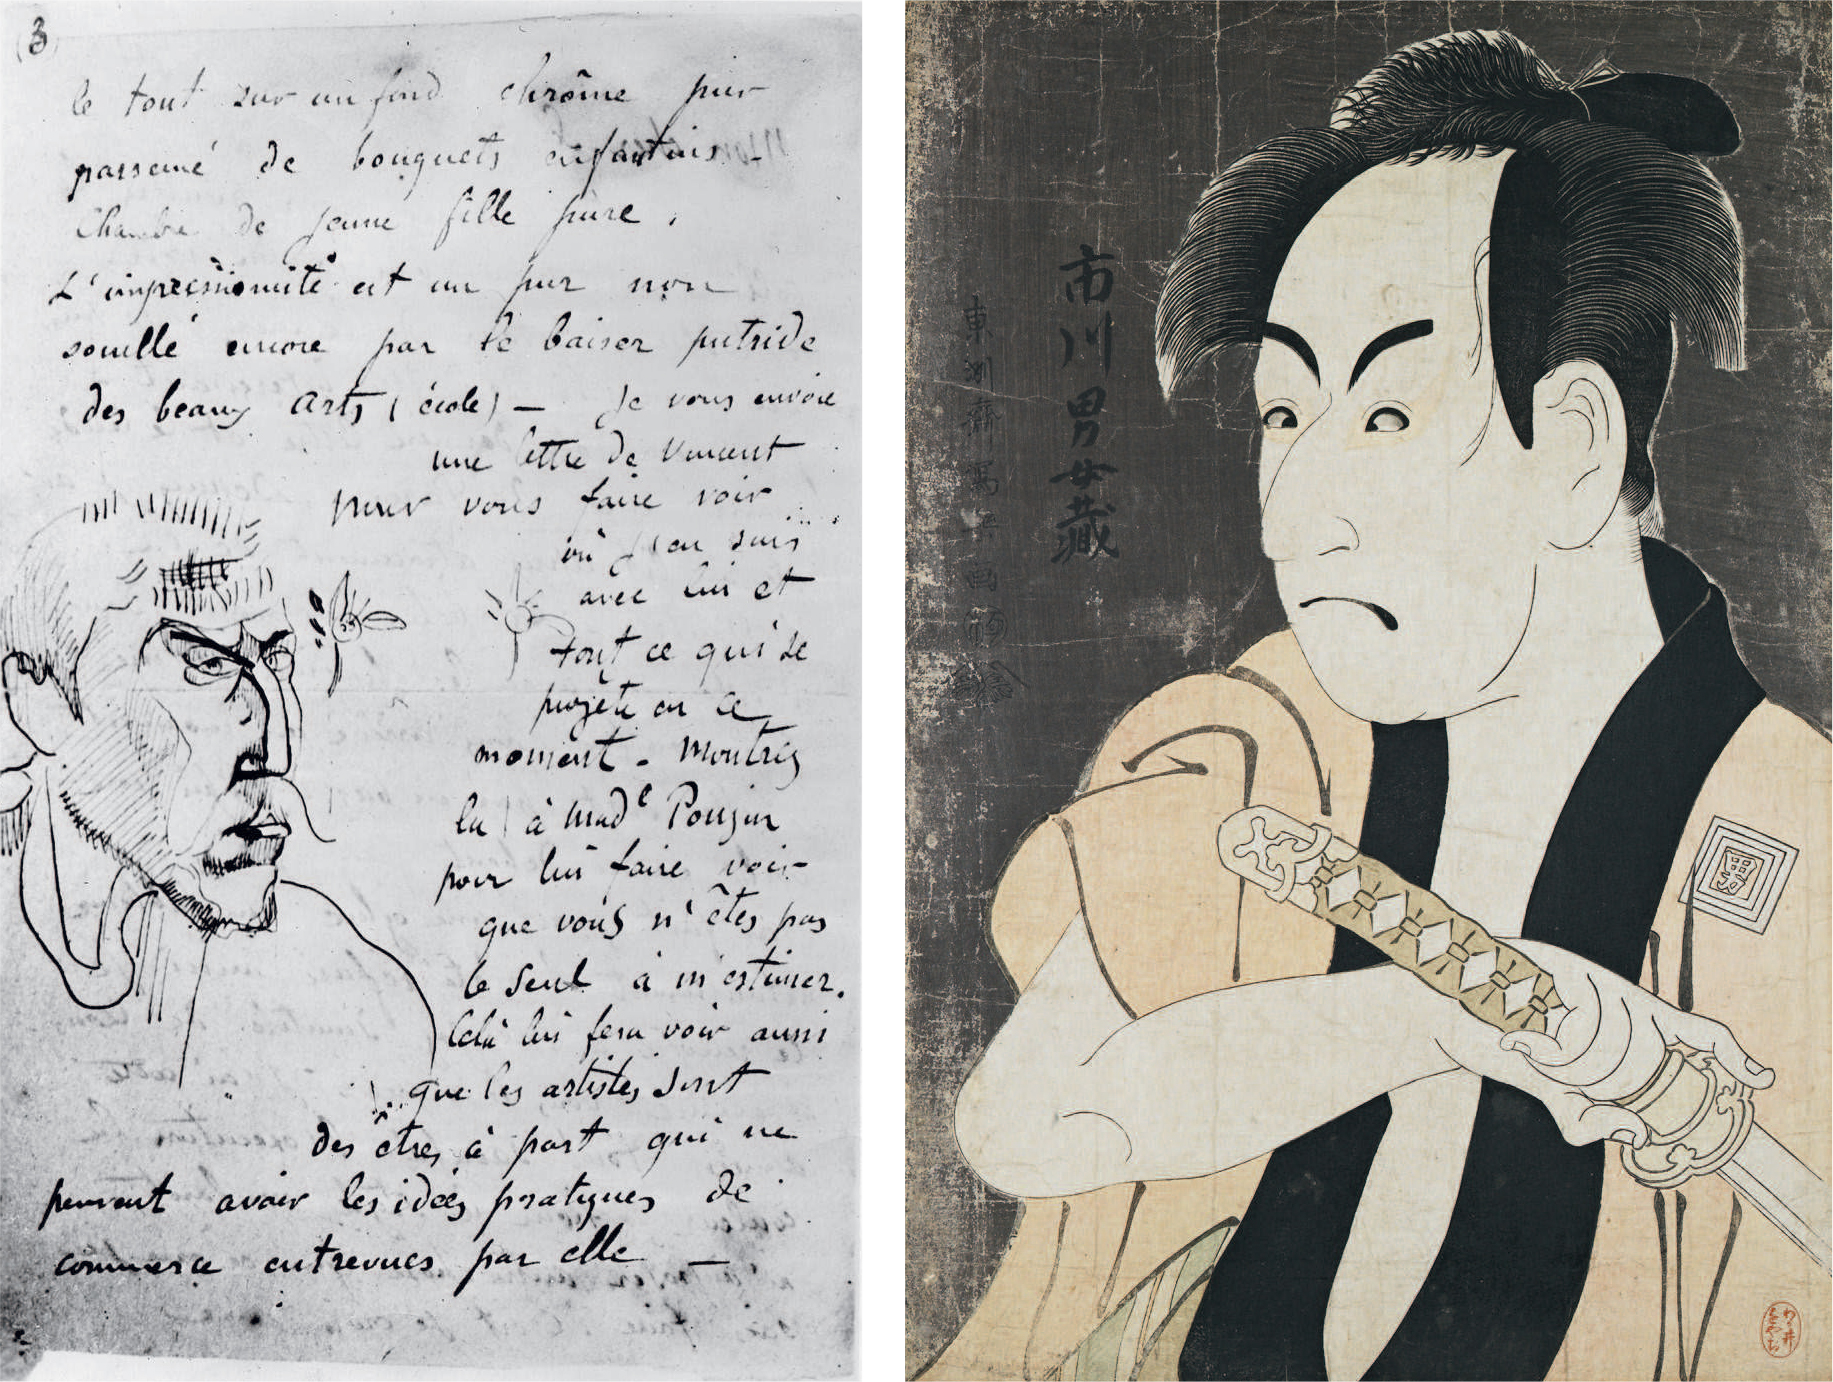 (3
le tout sur un fond chrôme pur
parsemé de bouquets enfantins –
Chambre de jeune fille pure.
L'impressionniste est un pur non
souillé encore par le baiser putride
des beaux arts (école) – Je vous envoie
une lettre de Vincent
pour vous faire voir
où j'en suis
avec lui et
tout ce qui se
projète en ce
moment. Montrez
la à Made Pougin
pour lui faire voir
que vous n'êtes pas
le seul à m'estimer.
Celà lui fera voir aussi
que les artistes sont
des êtres à part qui ne
peuvent avoir les idées pratiques de
commerce entrevues par elle –
市川男女蔵
東洲齋寫樂画
男